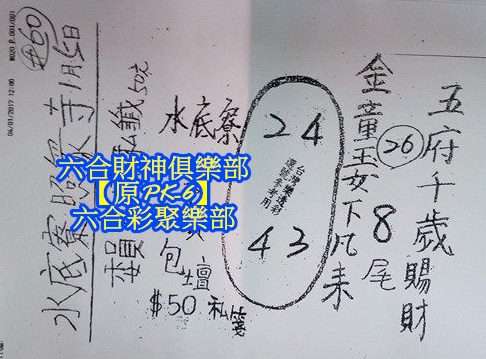 五府千歲賜財
金童玉女下凡來
26
8尾
24
43
台灣樂透彩
選號參考用
水底寮
包壇
$50 私簽
私籤50元
水底寮昭
寺1月5日
#60
六合財神俱樂部
【原PK6】
六合彩聚樂部
04/01/2017 12:00